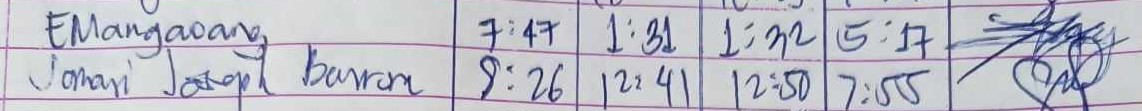 EMangaoang 7:47 1:31 1:32 5:17
Jomari Joseph Barron 8:26 12:41 12:50 7:55